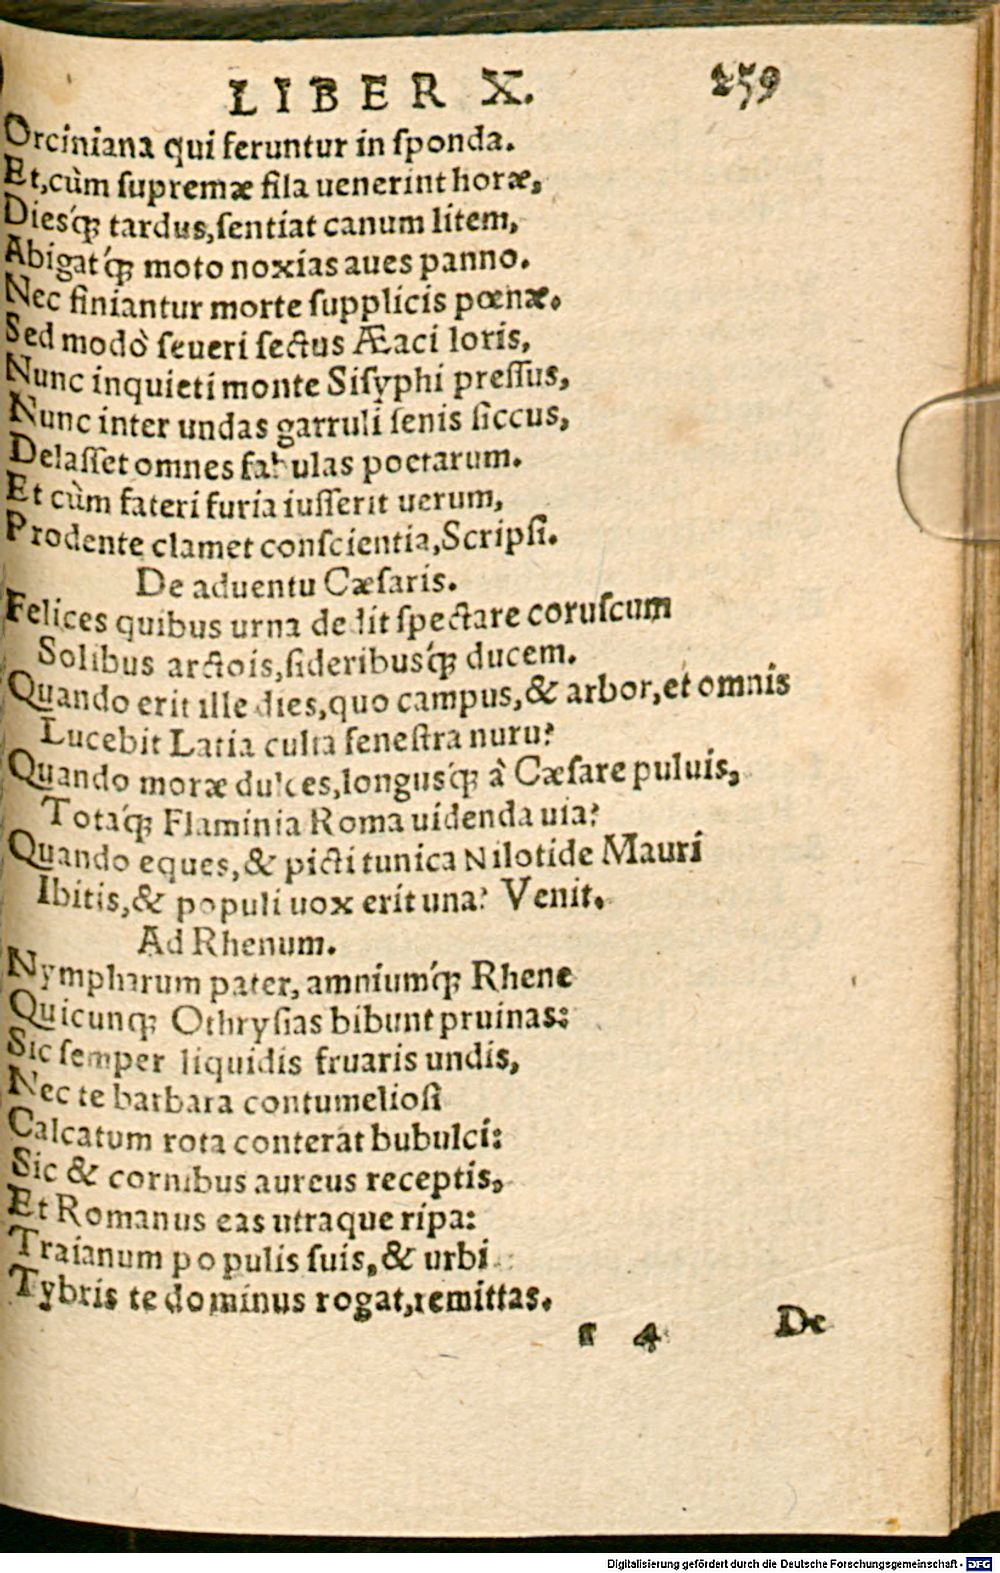 LIBER X. 259
Orciniana qui feruntur in ſponda.
Et, cùm ſupremæ fila uenerint horæ,
Dies'q; tardus, ſentiat canum litem,
Abigat'q; moto noxias aues panno.
Nec finiantur morte ſupplicis pœnæ.
Sed modò ſeueri ſectus Æaci loris,
Nunc inquieti monte Siſyphi preſſus,
Nunc inter undas garruli ſenis ſiccus,
Delaſſet omnes fabulas poetarum.
Et cùm fateri furia iuſſerit uerum,
Prodente clamet conſcientia, Scripſi.
De aduentu Cæſaris.
Felices quibus urna dedit ſpectare coruſcum
Solibus arctois, ſideribus'q; ducem.
Quando erit ille dies, quo campus, & arbor, et omnis
Lucebit Latia culta feneſtra nuru?
Quando moræ dulces, longus'q; à Cæſare puluis,
Tota'q; Flaminia Roma uidenda uia?
Quando eques, & picti tunica Nilotide Mauri
Ibitis, & populi uox erit una? Venit.
Ad Rhenum.
Nympharum pater, amnium'q; Rhene
Quicunq; Othryſias bibunt pruinas:
Sic ſemper liquidis fruaris undis,
Nec te barbara contumelioſi
Calcatum rota conterat bubulci:
Sic & cornibus aureus receptis,
Et Romanus eas utraque ripa:
Traianum populis ſuis, & urbi
Tybris te dominus rogat, remittas.
4 De
Digitalisierung gefördert durch die Deutsche Forschungsgemeinschaft - DFG